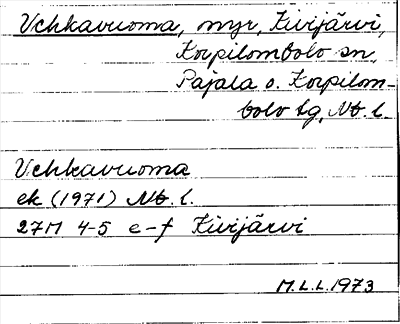 Vehkavuoma, myr, Kivijärvi,
Korpilombolo sn,
Pajala o. Korpilom-
bolo tg, Nb. l.
Vehkavuoma
ek (1971) Nb. l.
27M 4-5 e-f Kivijärvi
M.L.L. 1973